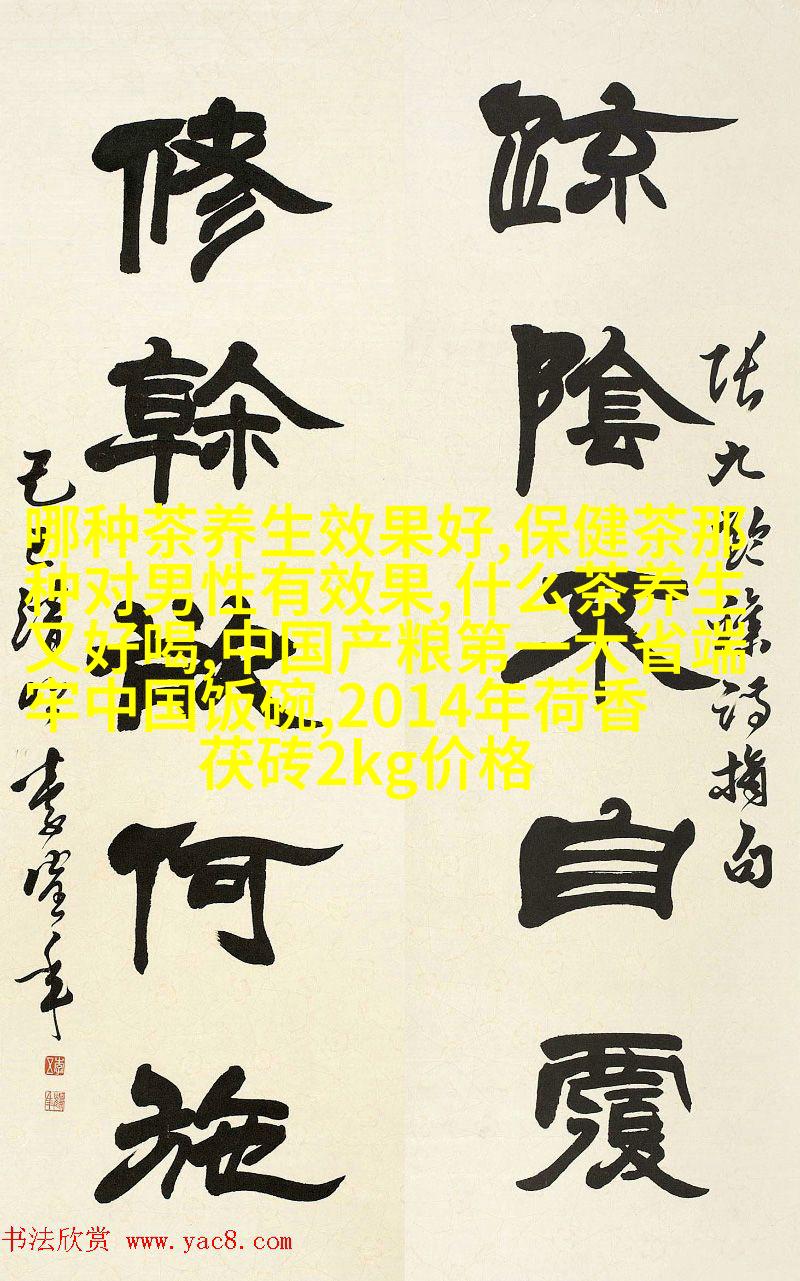 疏陰不自覆
張九齡雜詩摘句
修榦欲何施
己巳清明
哪种茶养生效果好,保健茶那
种对男性有效果,什么茶养生
又好喝,中国产粮第一大省端
牢中国饭碗,2014年荷香
茯砖2kg价格
书法欣赏 www.yac8.com